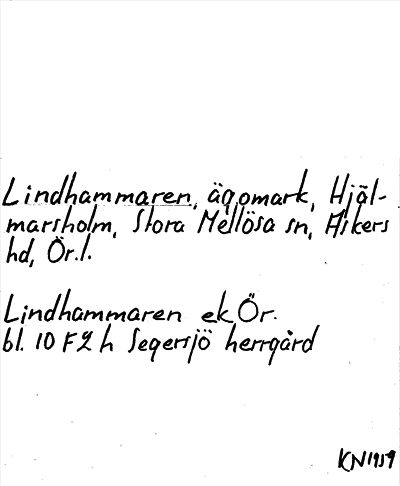 Lindhammaren, ägomark, Hjäl-
marsholm, Stora Mellösa sn, Askers
hd, Ör. l.
Lindhammaren ek Ör.
bl. 10 F 2 h Segersjö herrgård
KN 1959